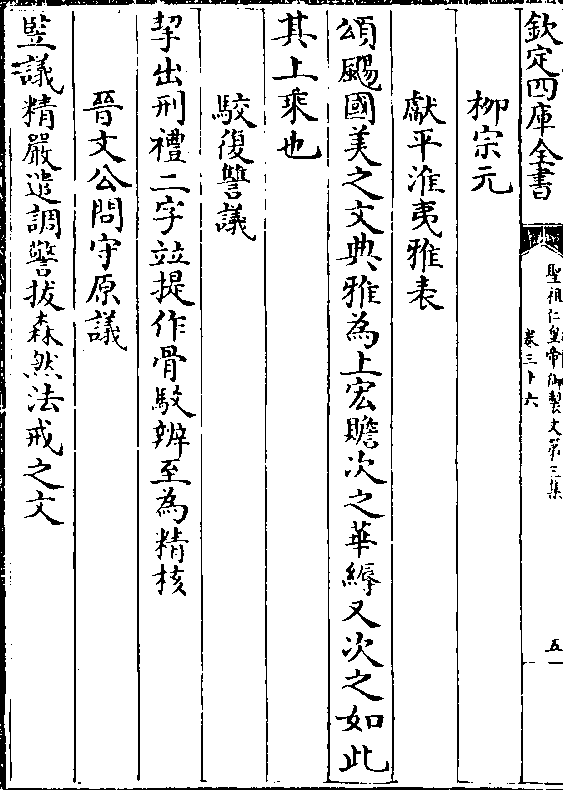 欽定四庫全書
聖祖仁皇帝御製文第三集
卷三十六
五
柳宗元
獻平淮夷雅表
頌颺國美之文典雅為上宏贍次之華縟又次之如此
其上乘也
駮復讐議
挈出刑禮二字竝提作骨駮辨至為精核
晉文公問守原議
監議精嚴遣調警拔森然法戒之文